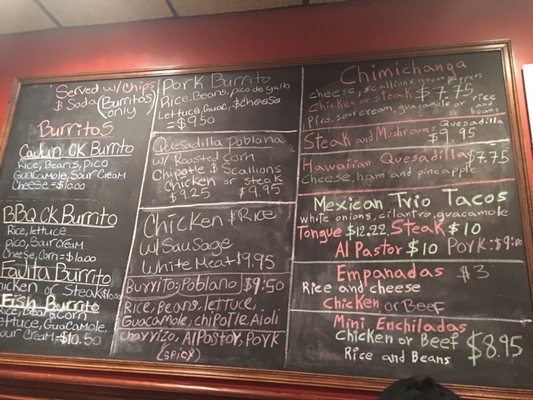 Served w/ Chips
& Soda (Burritos
only)
Burritos
Cajun CK Burrito
Rice, Beans, Pico
Guacamole, Sour Cream
Cheese = $10.00
BBQ CK Burrito
Rice, lettuce
pico, Sour cream
Cheese, Corn = $10.00
Fajita Burrito
Chicken or Steak $10.00
Fish Burrito
Rice, Beans, Corn
Lettuce, Guacamole,
Sour Cream = $10.50
Pork Burrito
Rice, Beans, pico de gallo
Lettuce, Guac, & cheese
= $9.50
Quesadilla Poblana
w/ Roasted corn
Chipotle & Scallions
Chicken or Steak
$9.25 $9.95
Chicken & Rice
w/ Sausage
White Meat $9.95
Burrito; Poblano $9.50
Rice, Beans, lettuce,
Guacamole, chipotle, Aioli
Chorrizo, Al Pastor, Pork
(spicy)
Chimichanga
cheese, scallions, green peppers
Chicken or steak $7.75, rice
Pico, sour cream, guacamole or and beans
Steak and Mushroom Quesadilla
$9.95
Hawaiian Quesadilla $7.75
Cheese, ham and pineapple
Mexican Trio Tacos
white onions, cilantro, guacamole
Tongue $12.22 Steak $10
Al Pastor $10 Pork: $9.00
Empanadas $3
Rice and cheese
Chicken or Beef
Mini Enchiladas
Chicken or Beef $8.95
Rice and Beans